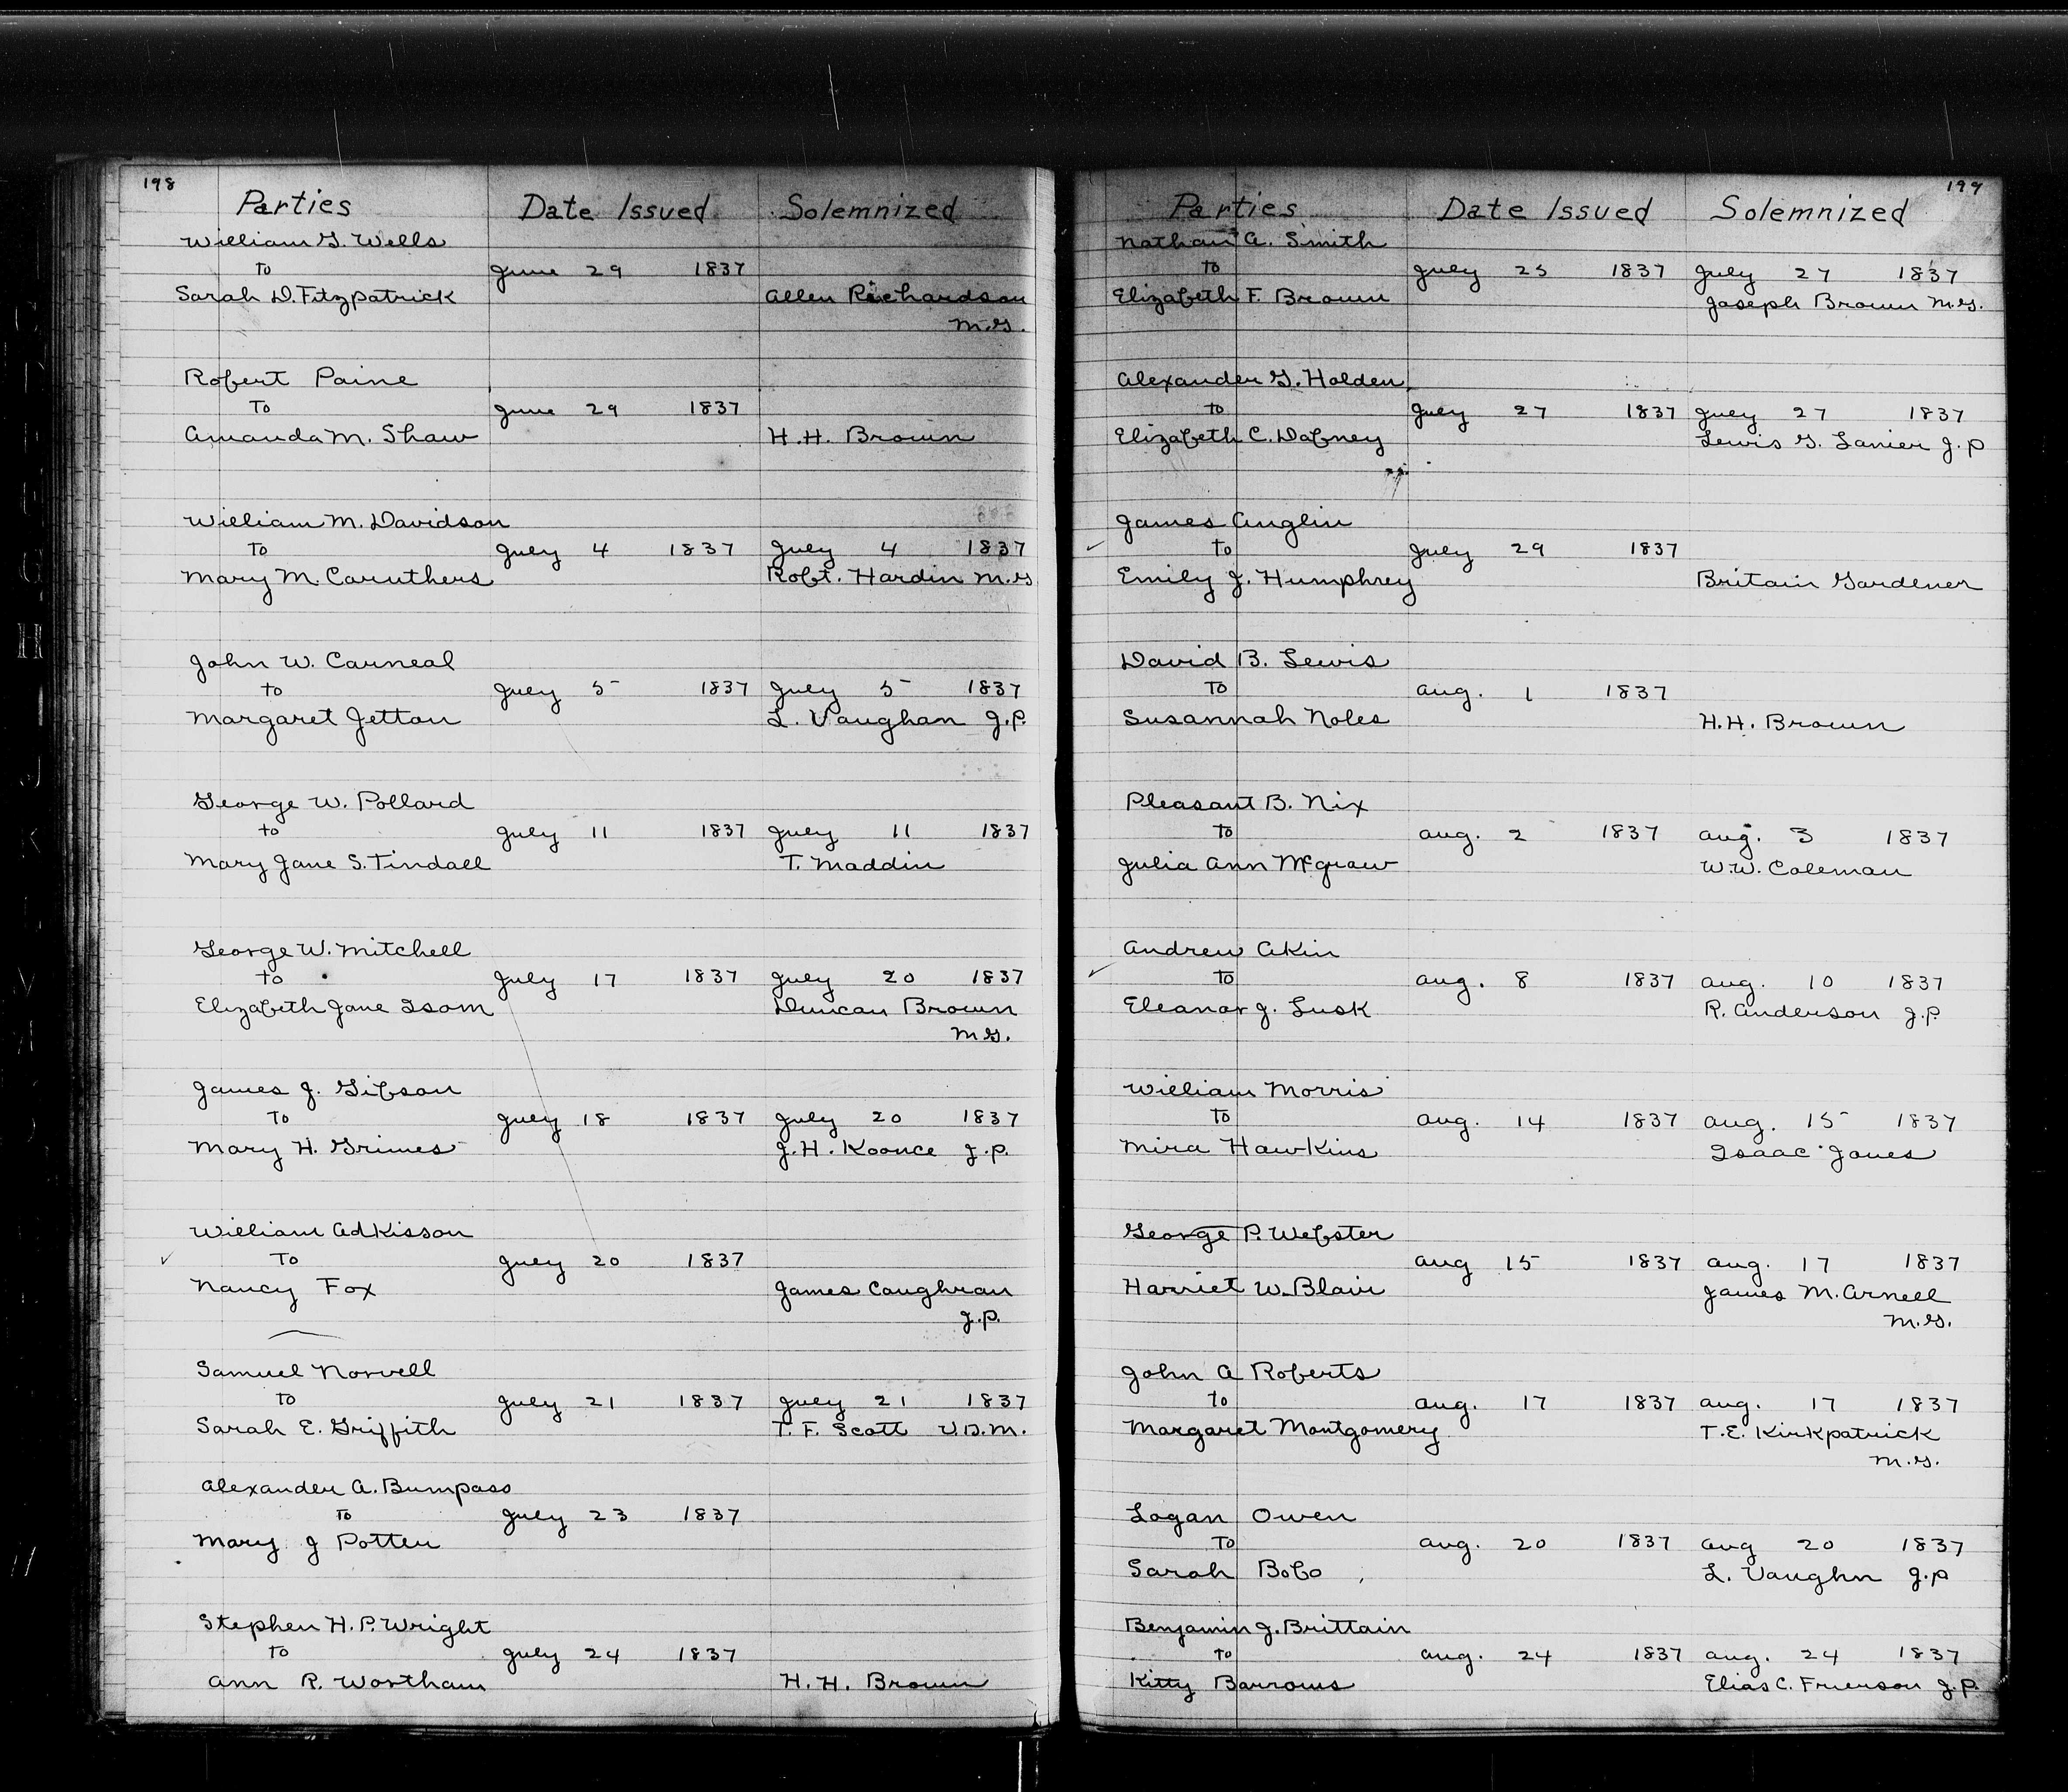 198
Parties Date Issued Solemnized
William G. Wells
to June 29 1837
Sarah D. Fitzpatrick Allen Richardson
M.G.
Robert Paine
To June 29 1837
Amanda M. Shaw H.H. Brown
William M. Davidson
To July 4 1837 July 4 1837
Mary M. Caruthers Robt. Hardin M.G
John W. Carneal
to July 5 1837 July 5 1837
Margaret Jetton L. Vaughan J.P.
George W. Pollard
to July 11 1837 July 11 1837
Mary Jane S. Tindall T. Maddin
George W. Mitchell
to July 17 1837 July 20 1837
Elizabeth Jane Isom Duncan Brown
M.G.
James J. Gibson
To July 18 1837 July 20 1837
Mary H. Grimes J.H. Koonce J.P.
William Adkisson
To July 20 1837
Nancy Fox James Caughran
J.P.
Samuel Norvell
to July 21 1837 July 21 1837
Sarah E. Griffith T. F. Scott V.D.M.
Alexander A. Bumpass
To July 23 1837
Mary J Potter
Stephen H. P. Wright
to July 24 1837
Ann R. Wortham H. H. Brown
199
Parties Date Issued Solemnized
Nathan A. Smith
to July 25 1837 July 27 1837
Elizabeth F. Brown Joseph Brown M.G.
Alexander G. Holden
to July 27 1837 July 27 1837
Elizabeth C. Dabney Lewis G. Lanier J.P
James Anglin
To July 29 1837
Emily J. Humphrey Britain Gardener
David B. Lewis
To Aug. 1 1837
Susannah Noles H.H. Brown
Pleasant B. Nix
to Aug. 2 1837 Aug. 3 1837
Julia Ann McGraw W.W. Coleman
Andrew Akin
to Aug. 8 1837 Aug. 10 1837
Eleanor J. Lusk R. Anderson J.P.
William Morris
to Aug. 14 1837 Aug. 15 1837
Mira Hawkins Isaac Jones
George P. Webster
Aug 15 1837 Aug. 17 1837
Harriet W. Blair James M. Arnell
M.G.
John A Roberts
to Aug. 17 1837 Aug. 17 1837
Margaret Montgomery T.E. Kirkpatrick
M.G.
Logan Owen
To Aug. 20 1837 Aug 20 1837
Sarah Bobo L. Vaughn J.P
Benjamin J. Brittain
to Aug. 24 1837 Aug. 24 1837
Kitty Barrows Elias C. Frierson J.P.